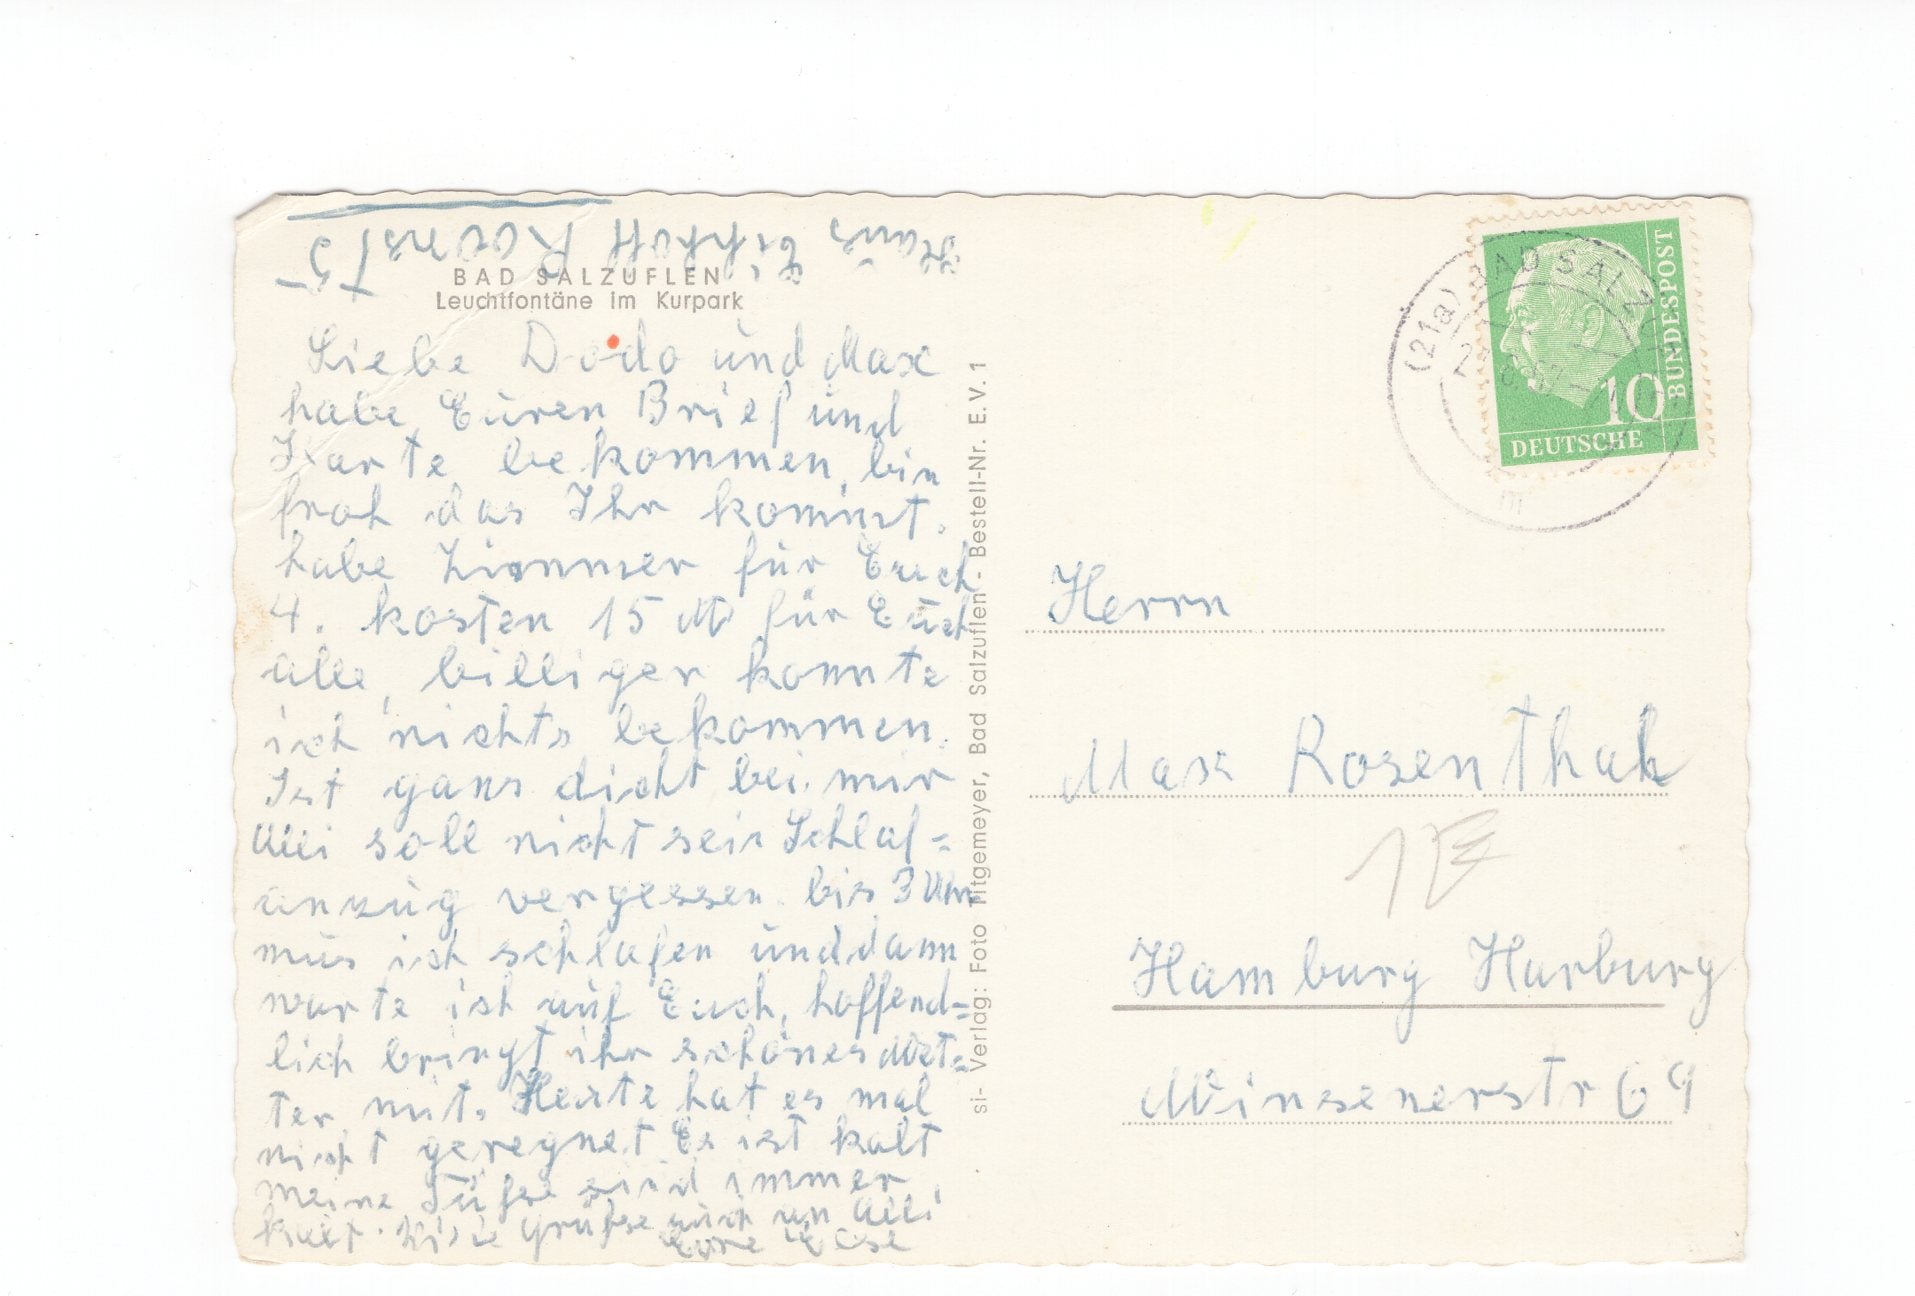 Haus Eickhoff Roonst 5
BAD SALZUFLEN
Leuchtfontäne im Kurpark
Liebe Dodo und Max
habe Euren Brief und
Karte bekommen, bin
froh das Ihr kommt.
habe Zimmer für Euch
4. kosten 15 M für Euch
alle, billiger konnte
ich nichts bekommen.
Ist gans dicht bei mir
Alli soll nicht sein Schlaf=
anzug vergessen. bis 3 Uhr
mus ich schlafen und dann
warte ich auf Euch, hoffend=
lich bringt ihr schönes Wet=
ter mit. Heute hat es mal
nicht geregnet Es ist kalt
meine Füße sind immer
kalt. Viele Grüße auch an Alli
Eure Else
si- Verlag: Foto Mitgemeyer, Bad Salzuflen - Bestell-Nr. E. V. 1
(21a) BAD SALZUFLEN
m
DEUTSCHE
BUNDESPOST
10
Herrn
Max Rosenthal
Hamburg Harburg
Winsenerstr 69